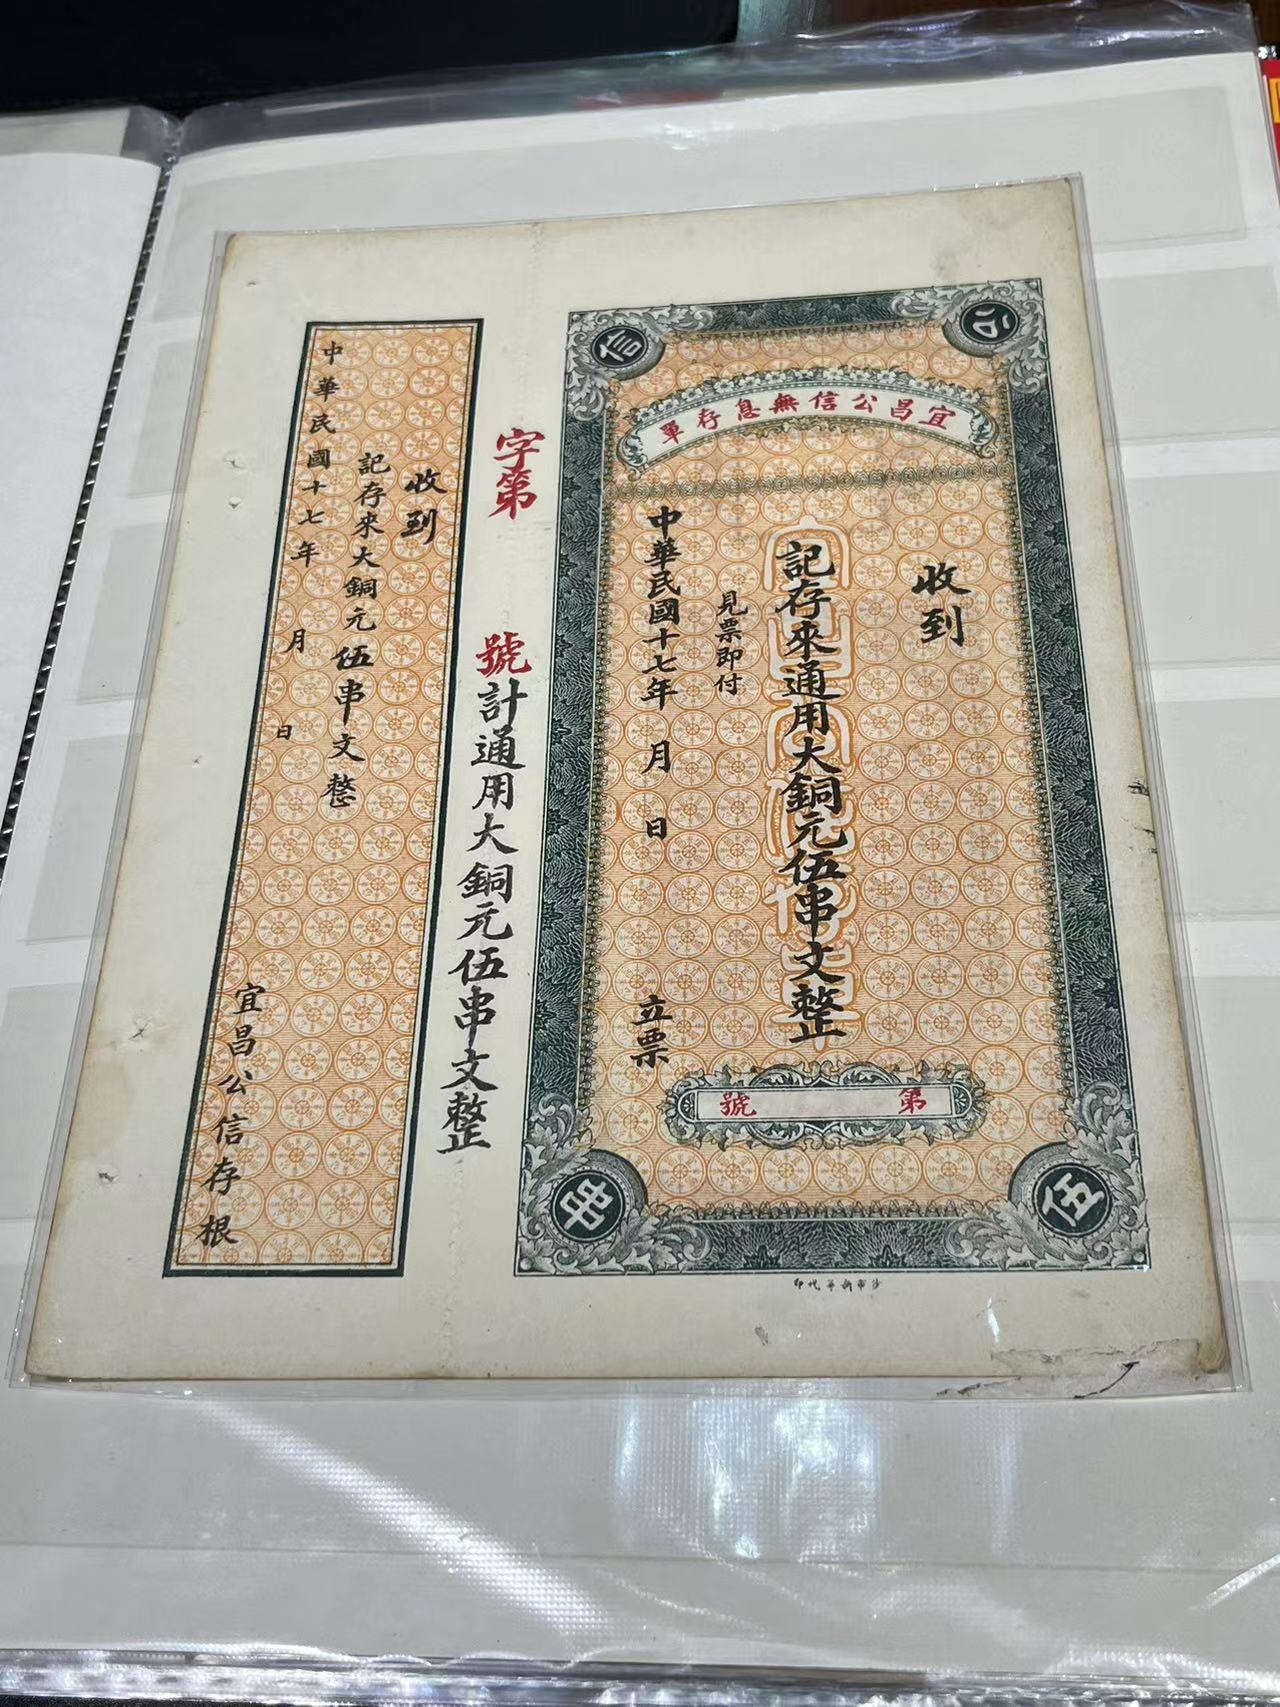 公信
宜昌公信無息存單
收到
記存來通用大銅元伍串文整
見票即付
中華民國十七年 月 日 立票
第 號
伍串
沙市新華代印
字第 號計通用大銅元伍串文整
收到
記存來大銅元伍串文整
中華民國十七年 月 日
宜昌公信存根